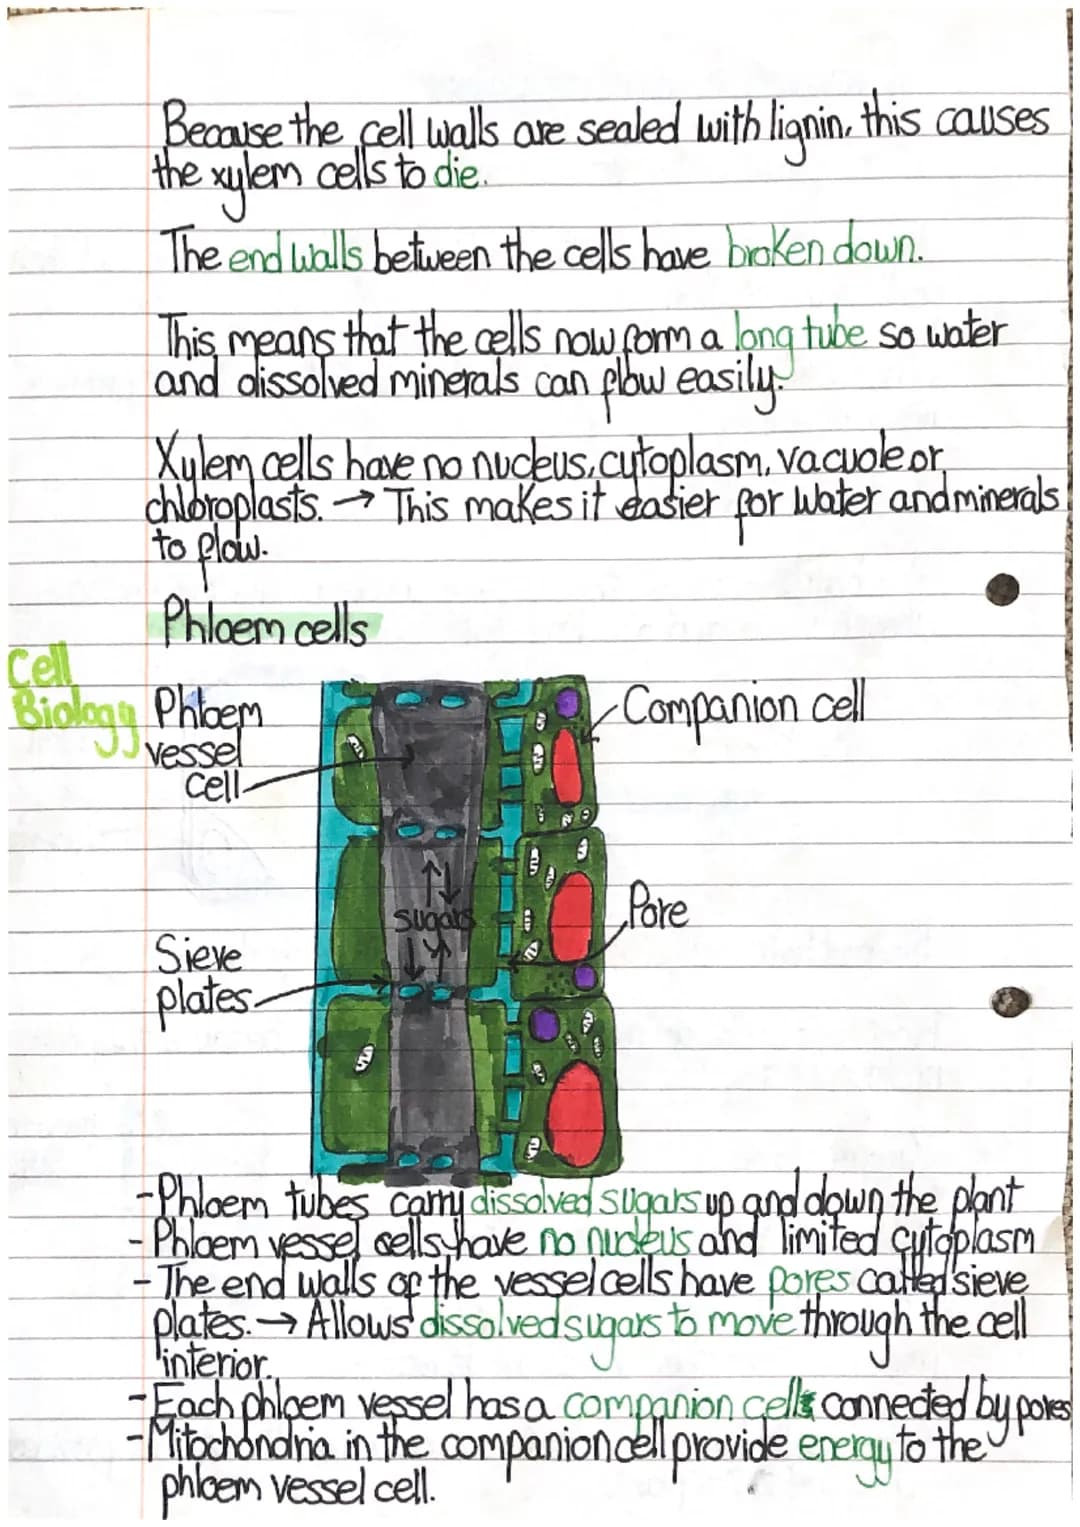 Because the cell walls are sealed with lignin, this causes
the xylem cells to die.
The end walls between the cells have broken down.
This means that the cells now form a long tube so water
and dissolved minerals can flow easily.
Xylem cells have no nucleus, cytoplasm, vacuole or
chloroplasts. → This makes it easier for water and minerals
to flow.
Phloem cells
Cell
Biology
Phloem
vessel
cell
Companion cell
sugars
Pore
Sieve
plates
-Phloem tubes carry dissolved sugars up and down the plant
- Phloem vessel cells have no nucleus and limited cytoplasm
- The end walls of the vessel cells have pores called sieve
plates. → Allows dissolved sugars to move through the cell
interior.
- Each phloem vessel has a companion cell connected by pores
- Mitochondria in the companion cell provide energy to the
phloem vessel cell.